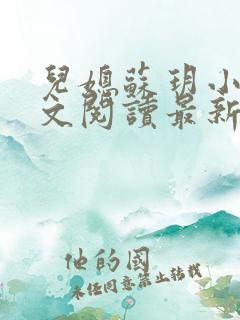 兒媳蘇玥小
文閱讀最新
他的國
未经同意禁止转载